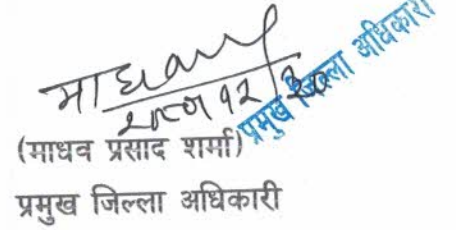 माधव
१२/३०
प्रमुख जिल्ला अधिकारी
(माधव प्रसाद शर्मा)
प्रमुख जिल्ला अधिकारी